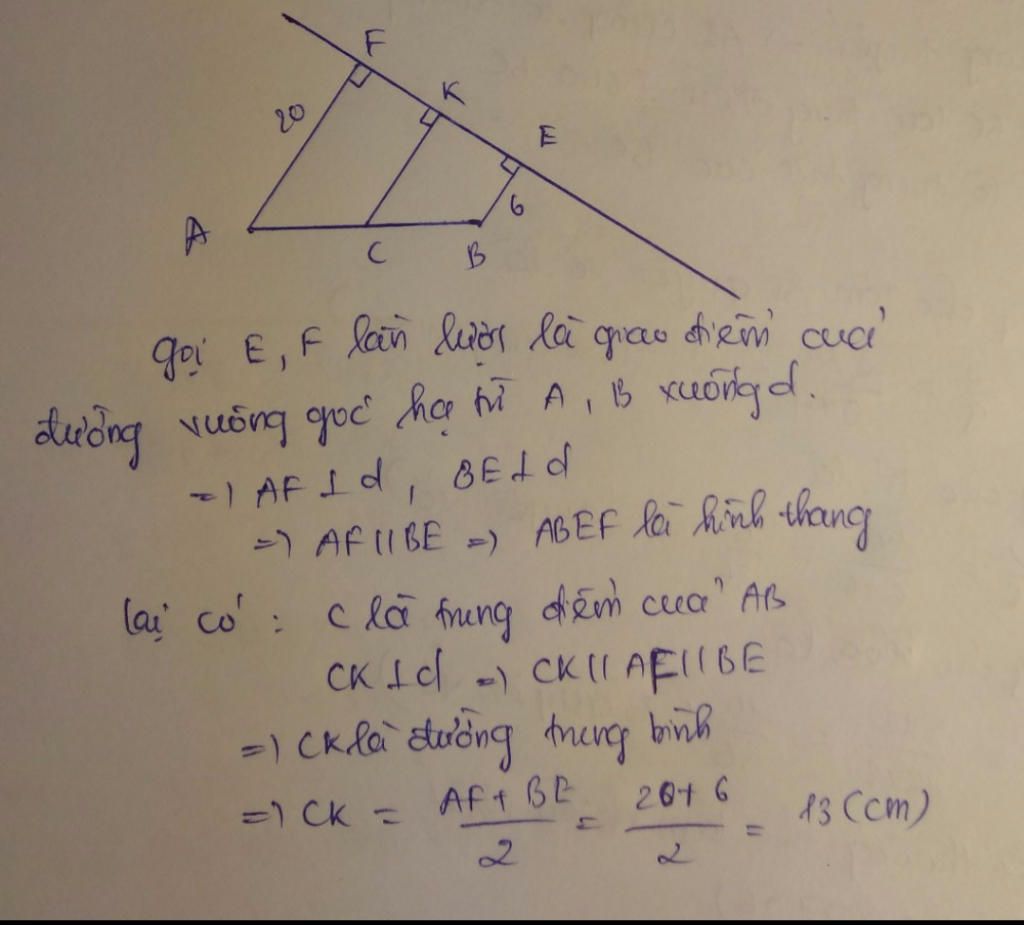 F
K
20
E
6
A
C
B
gọi E, F lần lượt là giao điểm của
đường vuông góc hạ từ A, B xuống d.
=> AF ⊥ d, BE ⊥ d
=> AF // BE => ABEF là hình thang
lại có: C là trung điểm của AB
CK ⊥ d => CK // AF // BE
=> CK là đường trung bình
=> CK = (AF + BE)/2 = (20 + 6)/2 = 13 (cm)